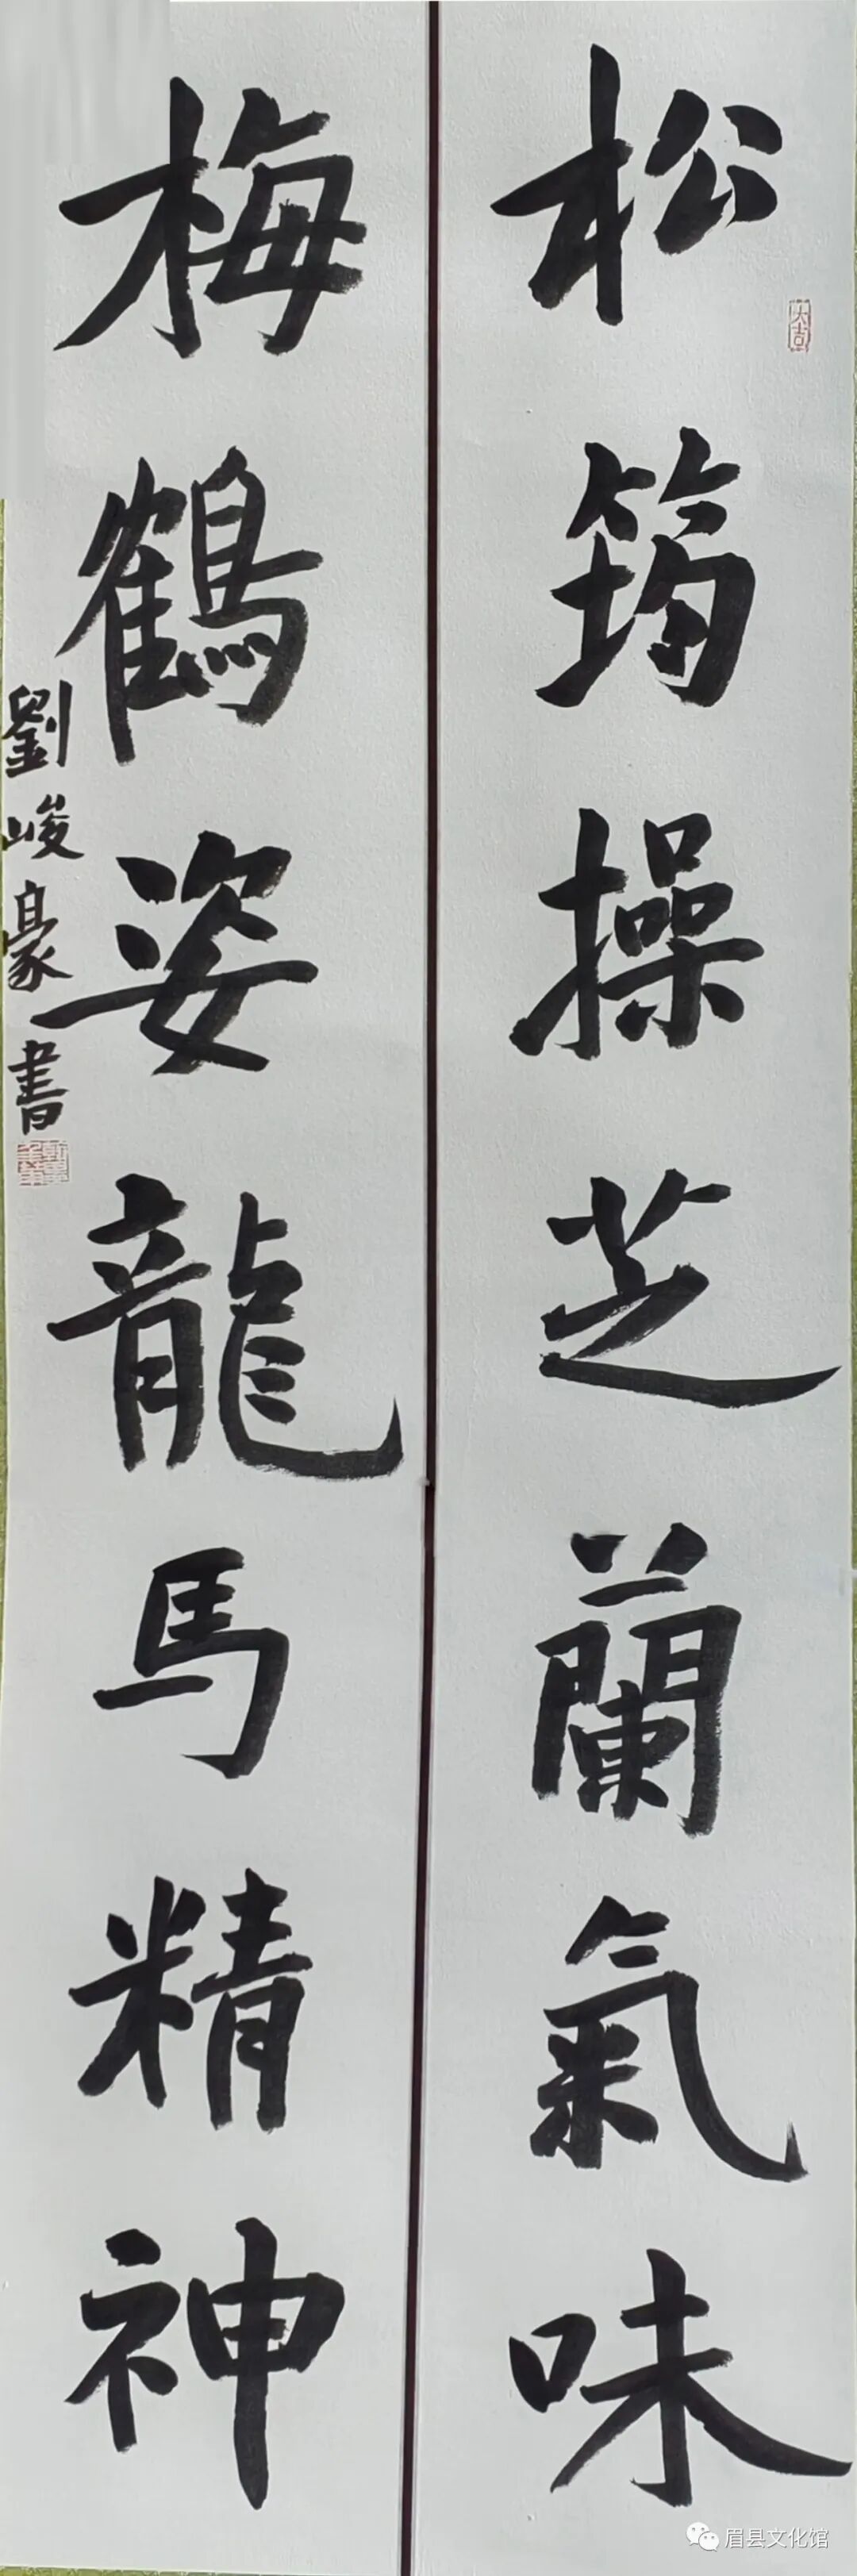 松筠操芝蘭氣味
梅鶴姿龍馬精神
劉峻豪書
大吉
眉县文化馆